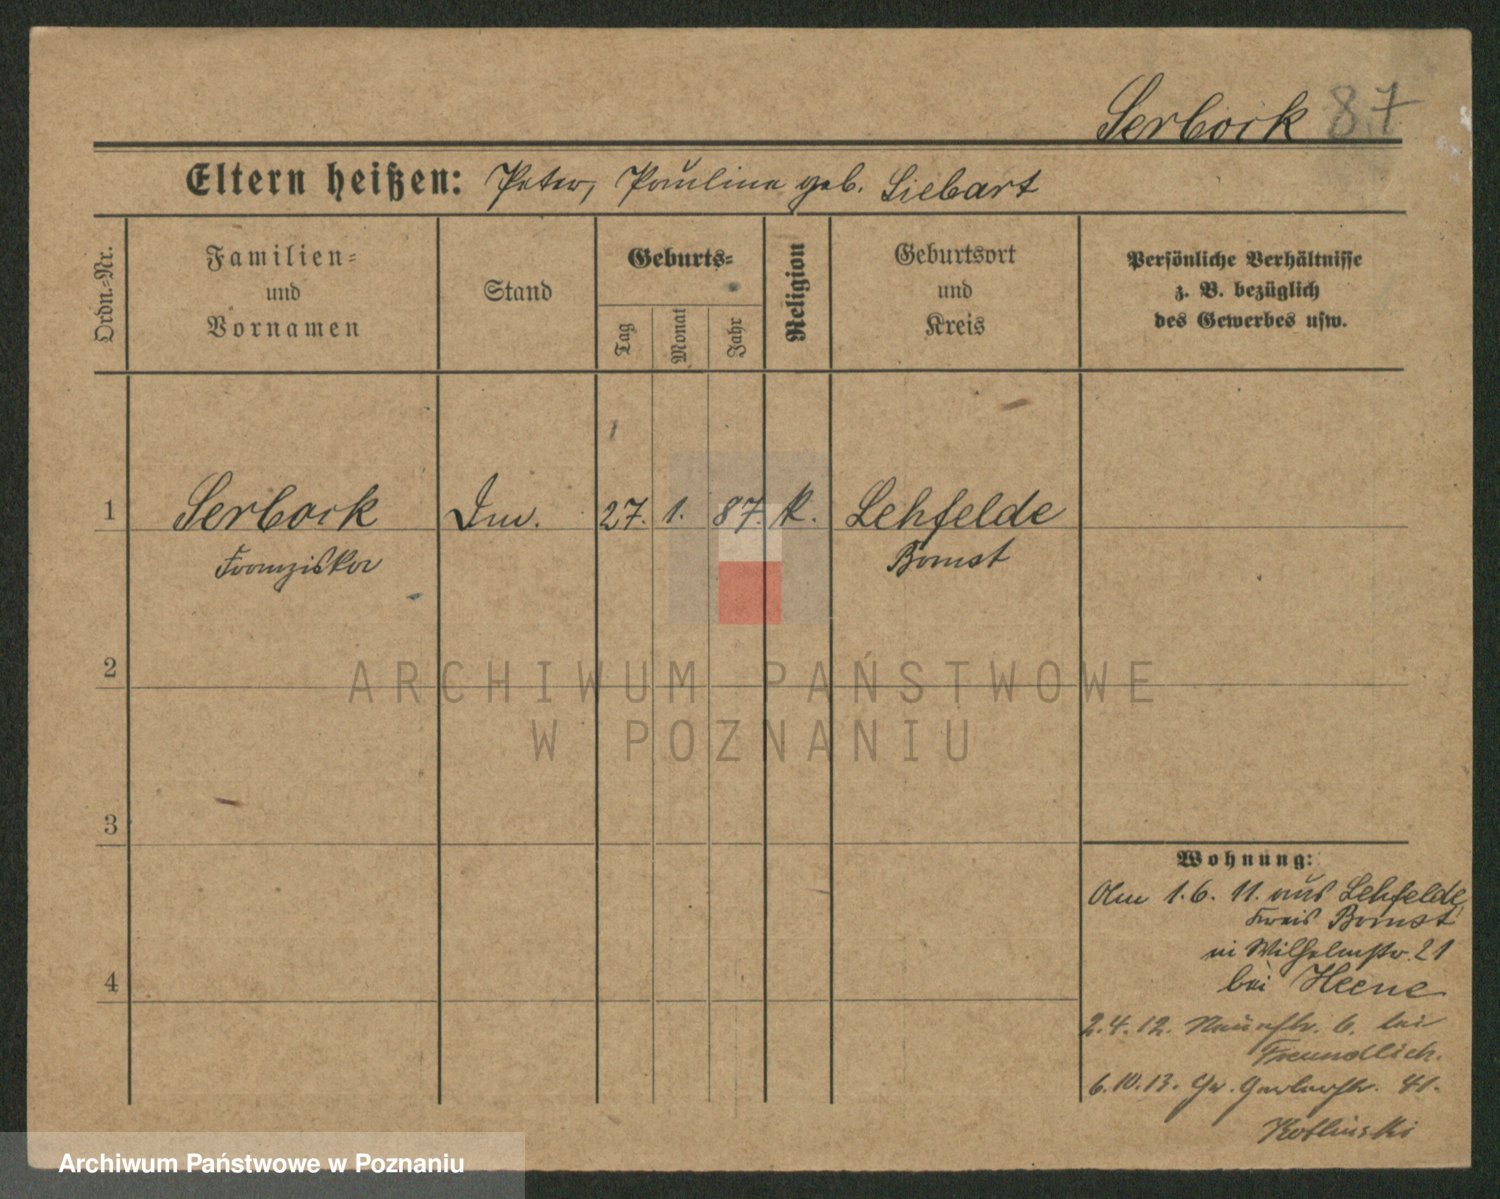 Serbock 87
Eltern heißen: Peter, Pauline geb. Liebart
Ordn.-Nr.
Familien-
und
Vornamen
Stand
Geburts-
Tag
Monat
Jahr
Religion
Geburtsort
und
Kreis
Persönliche Verhältnisse
z. B. bezüglich
des Gewerbes usw.
1 Serbock 27. 1. 87. k. Lehfelde
Franziska Bomst
2
3
4
Wohnung:
1.6.11. aus Lehfelde,
Kreis Bomst
in Wilhelmstr. 21
bei Heene
2.4.12. 6. bei
Freundlich.
6.10.13. Gr. Gerberstr. 41.
Koflinski
ARCHIWUM PAŃSTWOWE
W POZNANIU
Archiwum Państwowe w Poznaniu